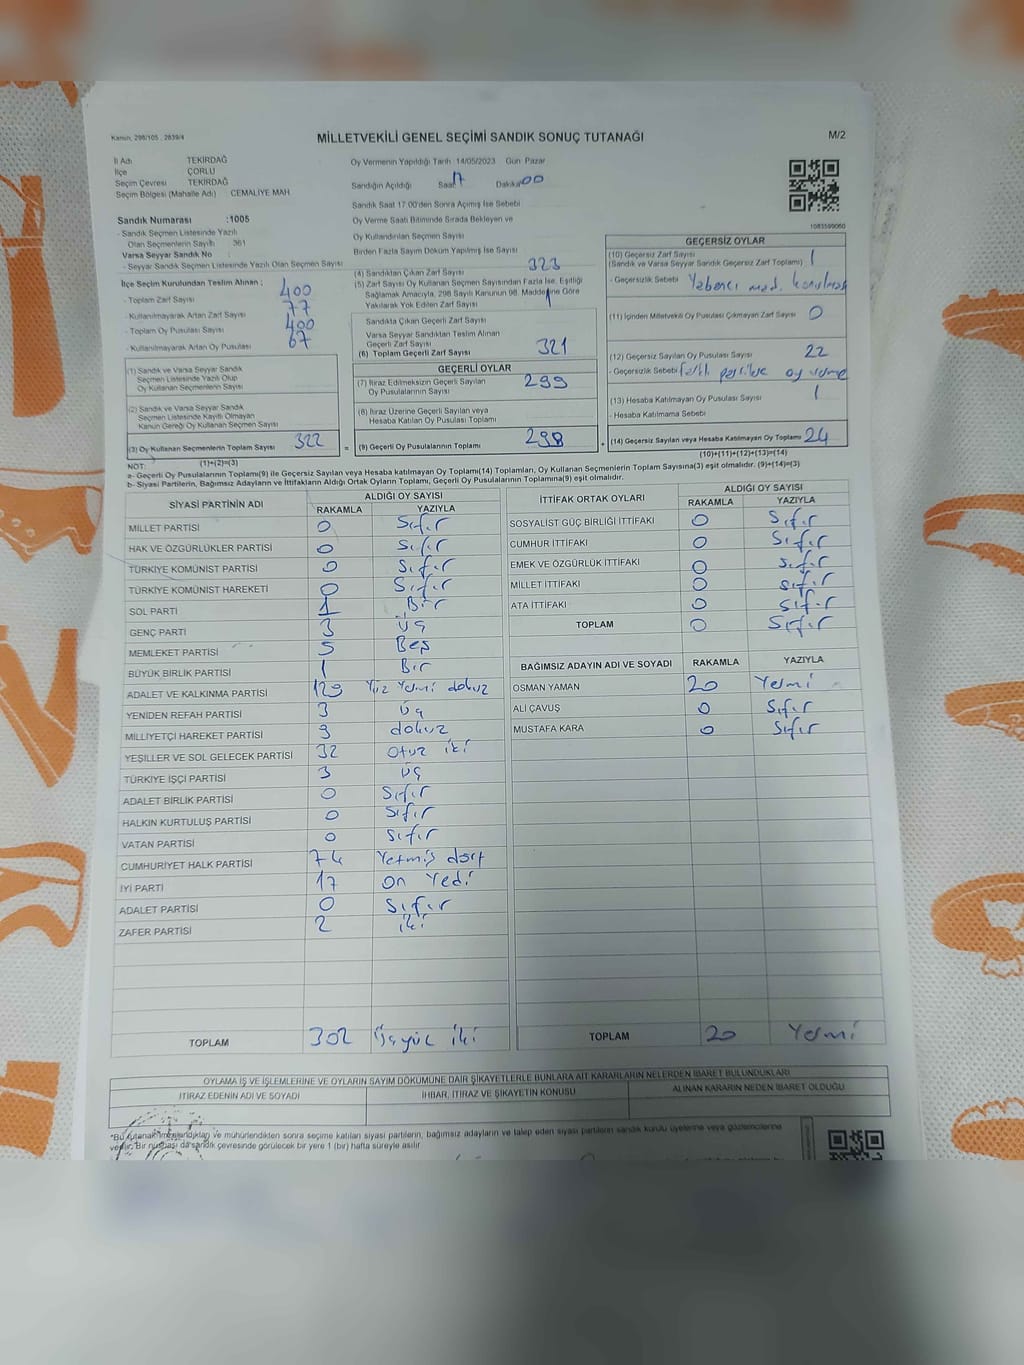 Kanun, 298/105 , 2839/4
MİLLETVEKİLİ GENEL SEÇİMİ SANDIK SONUÇ TUTANAĞI
M/2
İl Adı TEKİRDAĞ
İlçe ÇORLU
Seçim Çevresi TEKİRDAĞ
Seçim Bölgesi (Mahalle Adı) CEMALİYE MAH.
Sandık Numarası :1005
- Sandık Seçmen Listesinde Yazılı
Olan Seçmenlerin Sayısı 361
Varsa Seyyar Sandık No :
- Seyyar Sandık Seçmen Listesinde Yazılı Olan Seçmen Sayısı
İlçe Seçim Kurulundan Teslim Alınan ;
- Toplam Zarf Sayısı 400
- Kullanılmayarak Artan Zarf Sayısı 77
- Toplam Oy Pusulası Sayısı 400
- Kullanılmayarak Artan Oy Pusulası 67
(1) Sandık ve Varsa Seyyar Sandık
Seçmen Listesinde Yazılı Olup
Oy Kullanan Seçmenlerin Sayısı
(2) Sandık ve Varsa Seyyar Sandık
Seçmen Listesinde Kayıtlı Olmayan
Kanun Gereği Oy Kullanan Seçmen Sayısı
(3) Oy Kullanan Seçmenlerin Toplam Sayısı 322
(1)+(2)=(3)
Oy Vermenin Yapıldığı Tarih 14/05/2023 Gün Pazar
Sandığın Açıldığı Saat 17 Dakika 00
Sandık Saat 17.00'den Sonra Açılmış İse Sebebi
Oy Verme Saati Bitiminde Sırada Bekleyen ve
Oy Kullandırılan Seçmen Sayısı
Birden Fazla Sayım Döküm Yapılmış İse Sayısı
(4) Sandıktan Çıkan Zarf Sayısı 323
(5) Zarf Sayısı Oy Kullanan Seçmen Sayısından Fazla İse, Eşitliği
Sağlamak Amacıyla, 298 Sayılı Kanunun 98. Maddesine Göre
Yakılarak Yok Edilen Zarf Sayısı 1
Sandıkta Çıkan Geçerli Zarf Sayısı
Varsa Seyyar Sandıktan Teslim Alınan
Geçerli Zarf Sayısı
(6) Toplam Geçerli Zarf Sayısı 321
GEÇERLİ OYLAR
(7) İtiraz Edilmeksizin Geçerli Sayılan
Oy Pusulalarının Sayısı 299
(8) İtiraz Üzerine Geçerli Sayılan veya
Hesaba Katılan Oy Pusulası Toplamı
= (9) Geçerli Oy Pusulalarının Toplamı 298
1083599060
GEÇERSİZ OYLAR
(10) Geçersiz Zarf Sayısı
(Sandık ve Varsa Seyyar Sandık Geçersiz Zarf Toplamı) 1
- Geçersizlik Sebebi Yabancı mad.
(11) İçinden Milletvekili Oy Pusulası Çıkmayan Zarf Sayısı 0
(12) Geçersiz Sayılan Oy Pusulası Sayısı 22
- Geçersizlik Sebebi oy verme
(13) Hesaba Katılmayan Oy Pusulası Sayısı 1
- Hesaba Katılmama Sebebi
+ (14) Geçersiz Sayılan veya Hesaba Katılmayan Oy Toplamı 24
(10)+(11)+(12)+(13)=(14)
NOT:
a- Geçerli Oy Pusulalarının Toplamı(9) ile Geçersiz Sayılan veya Hesaba katılmayan Oy Toplamı(14) Toplamları, Oy Kullanan Seçmenlerin Toplam Sayısına(3) eşit olmalıdır. (9)+(14)=(3)
b- Siyasi Partilerin, Bağımsız Adayların ve İttifakların Aldığı Ortak Oyların Toplamı, Geçerli Oy Pusulalarının Toplamına(9) eşit olmalıdır.
SİYASİ PARTİNİN ADI ALDIĞI OY SAYISI
RAKAMLA YAZIYLA
MİLLET PARTİSİ 0 Sıfır
HAK VE ÖZGÜRLÜKLER PARTİSİ 0 Sıfır
TÜRKİYE KOMÜNİST PARTİSİ 0 Sıfır
TÜRKİYE KOMÜNİST HAREKETİ 0 Sıfır
SOL PARTİ 1 Bir
GENÇ PARTİ 3 Üç
MEMLEKET PARTİSİ 5 Beş
BÜYÜK BİRLİK PARTİSİ 1 Bir
ADALET VE KALKINMA PARTİSİ 129 Yüz Yirmi dokuz
YENİDEN REFAH PARTİSİ 3 Üç
MİLLİYETÇİ HAREKET PARTİSİ 9 dokuz
YEŞİLLER VE SOL GELECEK PARTİSİ 32 Otuz iki
TÜRKİYE İŞÇİ PARTİSİ 3 Üç
ADALET BİRLİK PARTİSİ 0 Sıfır
HALKIN KURTULUŞ PARTİSİ 0 Sıfır
VATAN PARTİSİ 0 Sıfır
CUMHURİYET HALK PARTİSİ 74 Yetmiş dört
İYİ PARTİ 17 On Yedi
ADALET PARTİSİ 0 Sıfır
ZAFER PARTİSİ 2 iki
TOPLAM 302 Üçyüz iki
İTTİFAK ORTAK OYLARI ALDIĞI OY SAYISI
RAKAMLA YAZIYLA
SOSYALİST GÜÇ BİRLİĞİ İTTİFAKI 0 Sıfır
CUMHUR İTTİFAKI 0 Sıfır
EMEK VE ÖZGÜRLÜK İTTİFAKI 0 Sıfır
MİLLET İTTİFAKI 0 Sıfır
ATA İTTİFAKI 0 Sıfır
TOPLAM 0 Sıfır
BAĞIMSIZ ADAYIN ADI VE SOYADI RAKAMLA YAZIYLA
OSMAN YAMAN 20 Yirmi
ALİ ÇAVUŞ 0 Sıfır
MUSTAFA KARA 0 Sıfır
TOPLAM 20 Yirmi
OYLAMA İŞ VE İŞLEMLERİNE VE OYLARIN SAYIM DÖKÜMÜNE DAİR ŞİKAYETLERLE BUNLARA AİT KARARLARIN NELERDEN İBARET BULUNDUKLARI
İTİRAZ EDENİN ADI VE SOYADI İHBAR, İTİRAZ VE ŞİKAYETİN KONUSU ALINAN KARARIN NEDEN İBARET OLDUĞU
*Bu tutanak imzalandıktan ve mühürlendikten sonra seçime katılan siyasi partilerin, bağımsız adayların ve talep eden siyasi partilerin sandık kurulu üyelerine veya gözlemcilerine
verilir. Bir nüshası da sandık çevresinde görülecek bir yere 1 (bir) hafta süreyle asılır